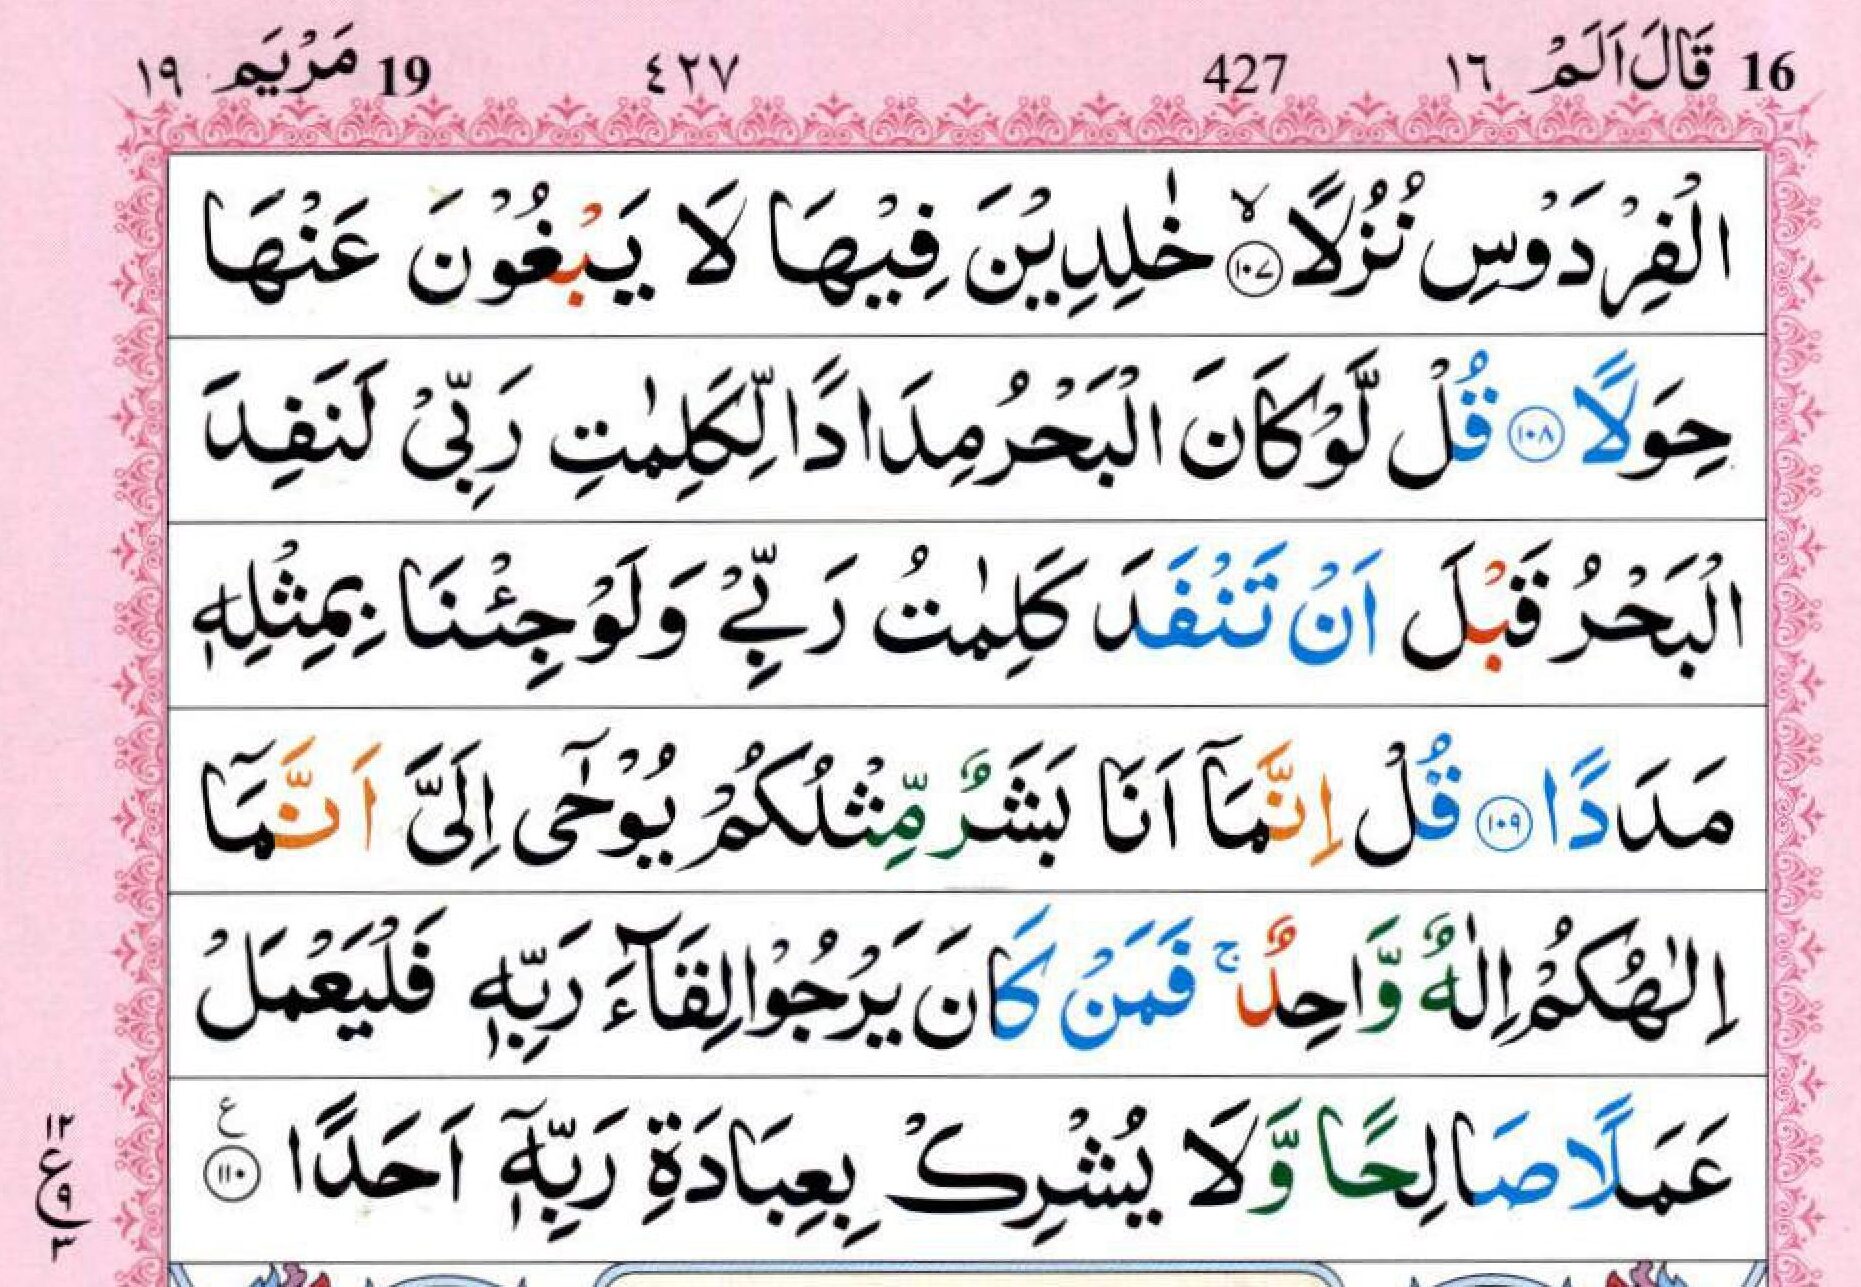 16 قَالَ اَلَمْ ١٦ 427 ٤٢٧ 19 مَرْيَم ١٩
الْفِرْدَوْسِ نُزُلًا ۙ﴿١٠٧﴾ خٰلِدِيْنَ فِيْهَا لَا يَبْغُوْنَ عَنْهَا
حِوَلًا ﴿١٠٨﴾ قُلْ لَّوْ كَانَ الْبَحْرُ مِدَادًا لِّكَلِمٰتِ رَبِّيْ لَنَفِدَ
الْبَحْرُ قَبْلَ اَنْ تَنْفَدَ كَلِمٰتُ رَبِّيْ وَلَوْ جِئْنَا بِمِثْلِهٖ
مَدَدًا ﴿١٠٩﴾ قُلْ اِنَّمَآ اَنَا بَشَرٌ مِّثْلُكُمْ يُوْحٰٓى اِلَيَّ اَنَّمَآ
اِلٰهُكُمْ اِلٰهٌ وَّاحِدٌ ۚ فَمَنْ كَانَ يَرْجُوْا لِقَآءَ رَبِّهٖ فَلْيَعْمَلْ
عَمَلًا صَالِحًا وَّلَا يُشْرِكْ بِعِبَادَةِ رَبِّهٖٓ اَحَدًا ﴿١١٠﴾ ع
١٢
ع
٩
٣